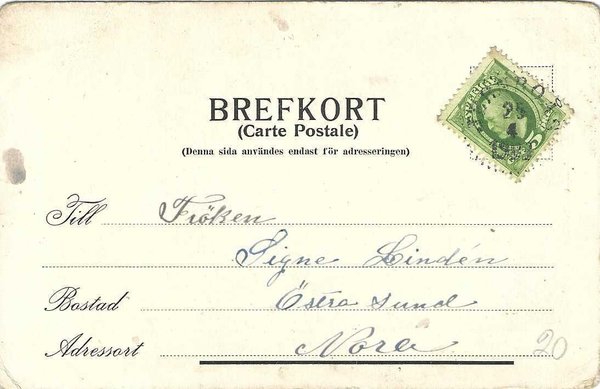 BREFKORT
(Carte Postale)
(Denna sida användes endast för adresseringen)
Till Fröken
Signe Lindén
Bostad Östra sund
Adressort Nora
20